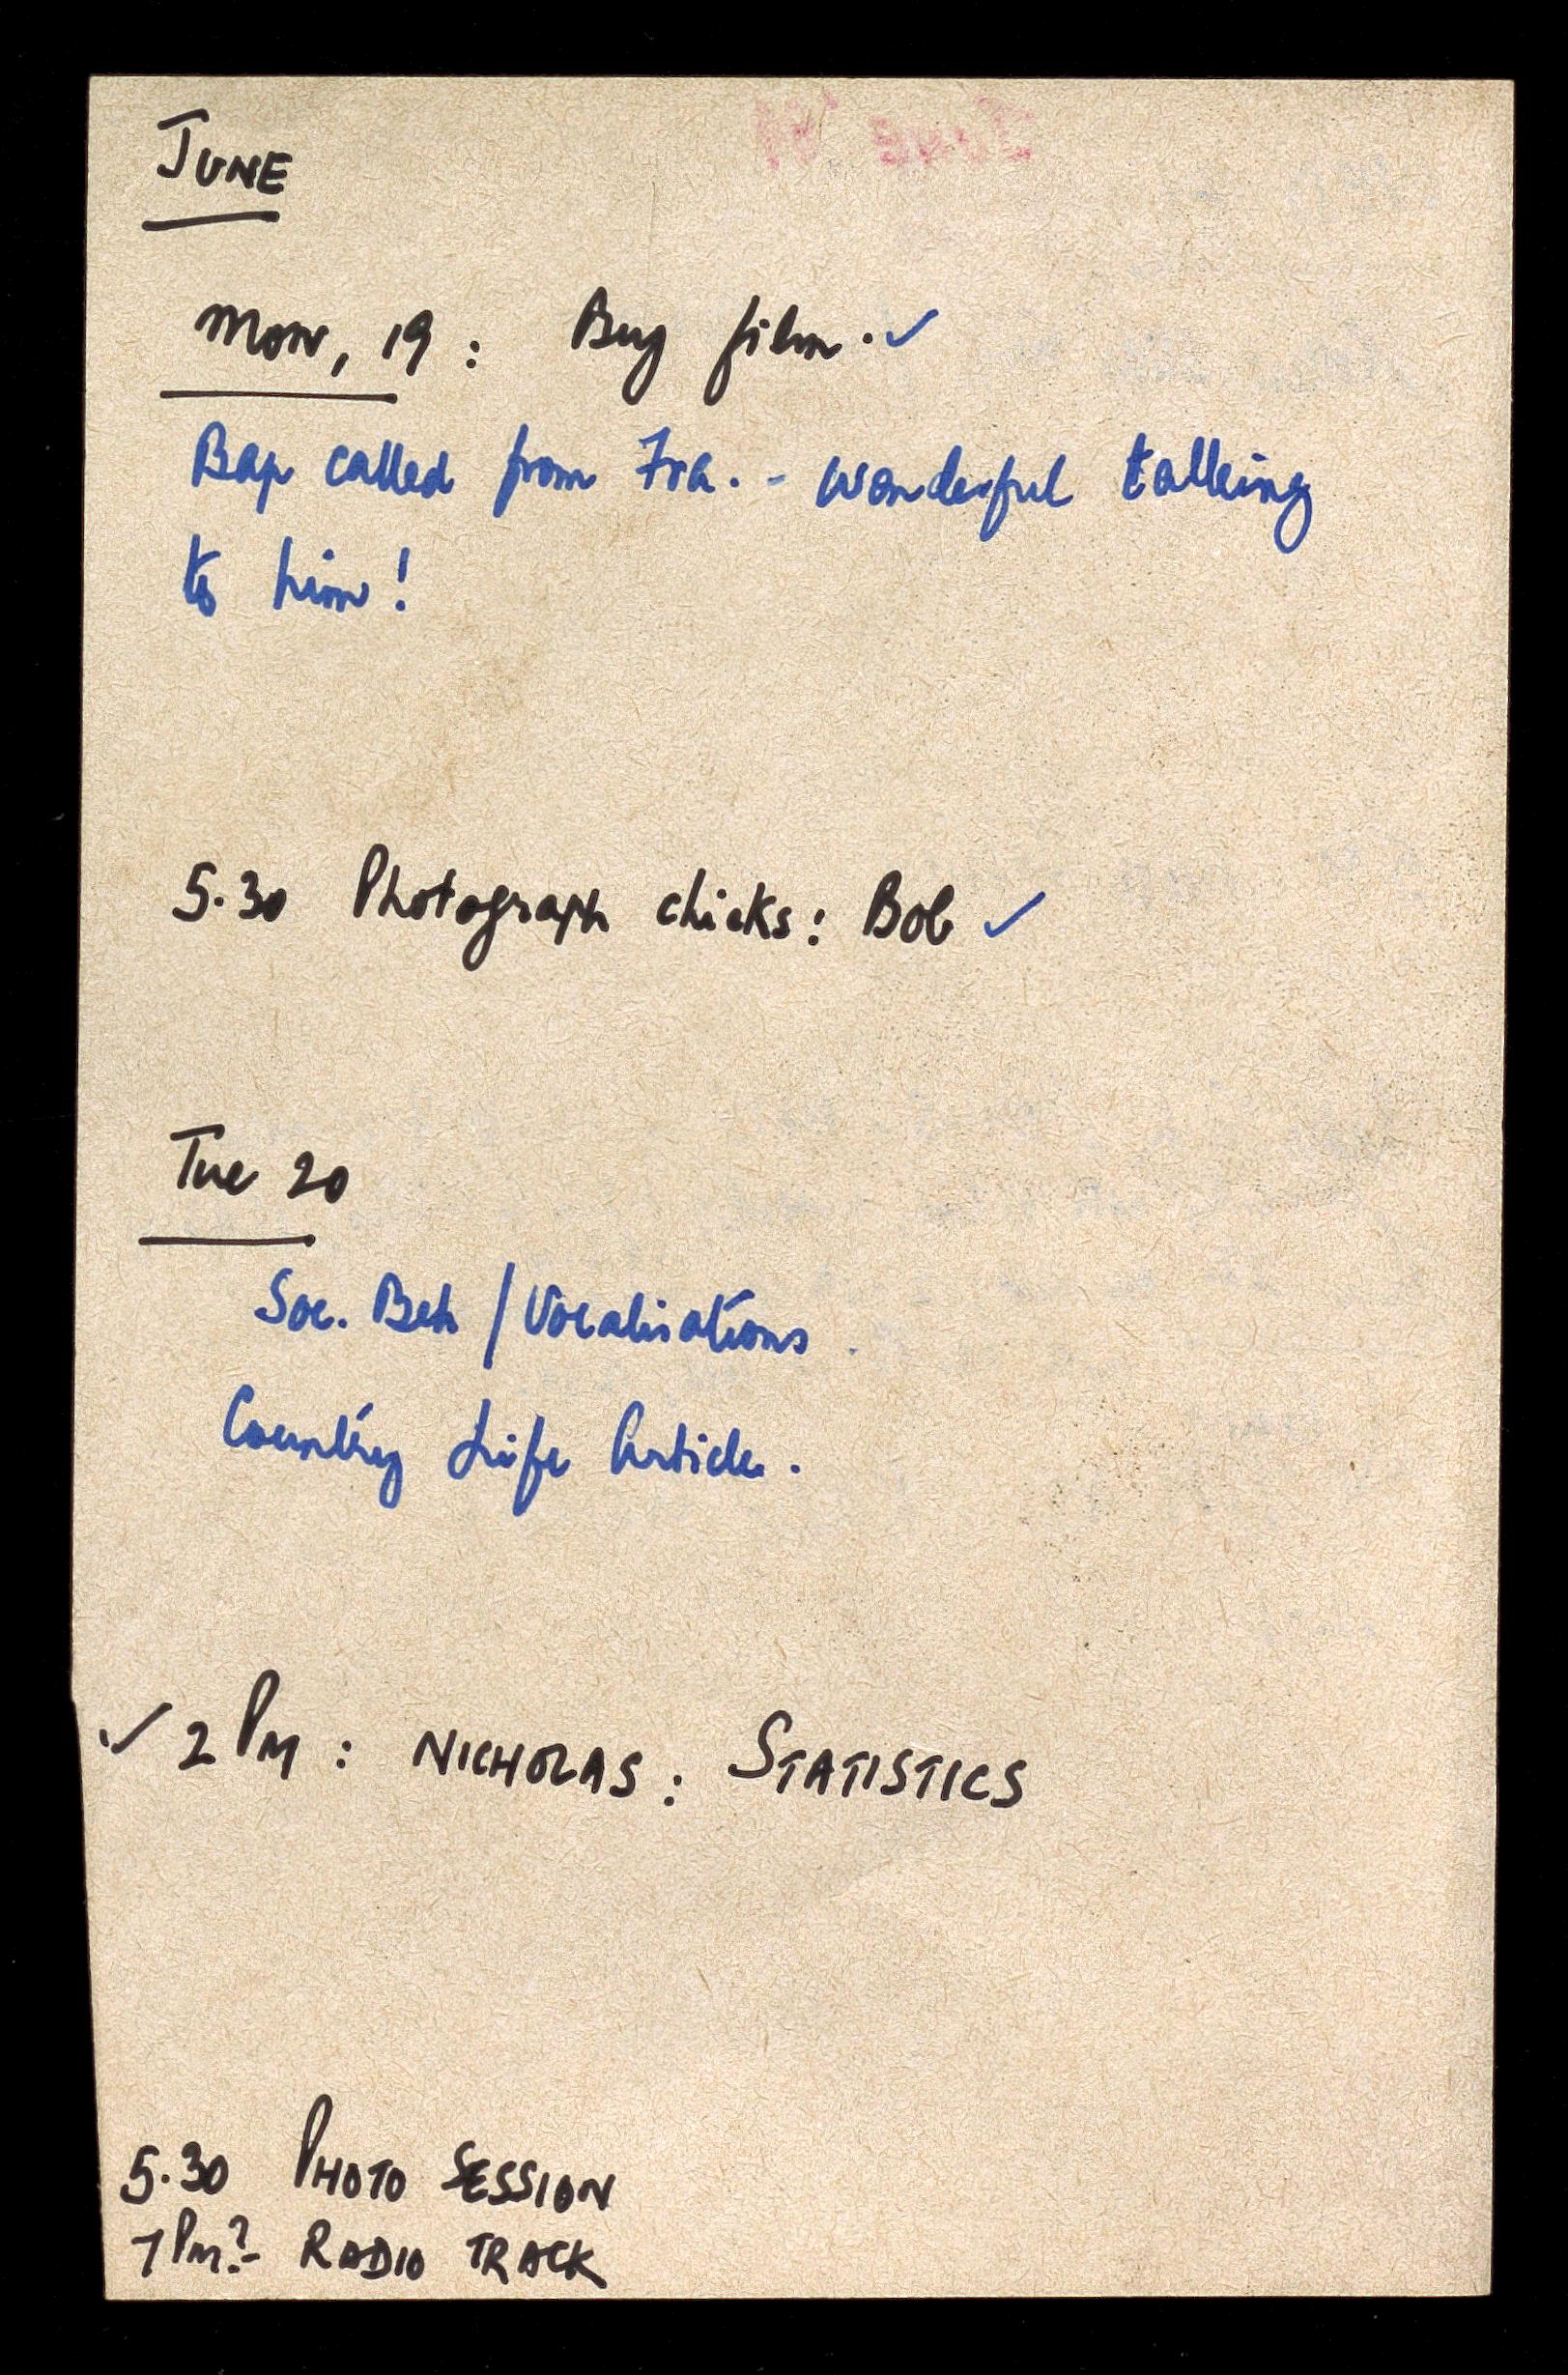 JUNE
Mon, 19 : Buy film. ✓
Bap called from Fra. - wonderful talking
to him!
5.30 Photograph chicks: Bob ✓
Tue 20
Soc. Beh / Vocalisations
Country Life Article.
✓ 2 PM : NICHOLAS : STATISTICS
5.30 PHOTO SESSION
7 PM? - RADIO TRACK